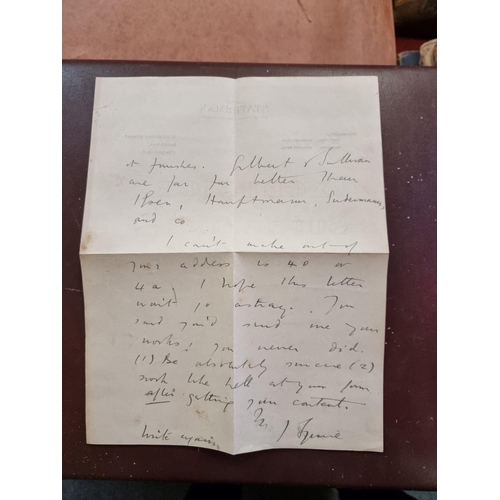 it finishes. Gilbert & Sullivan
are far far better than
Ibsen, Hauptmann, Sudermann,
and co.
I can't make out if
your address is 40 or
4a. I hope this letter
won't go astray. You
said you'd send me your
works! You never did.
(1) Be absolutely sincere (2)
work like hell at your form
after getting your content.
Yrs.
J
Write again.